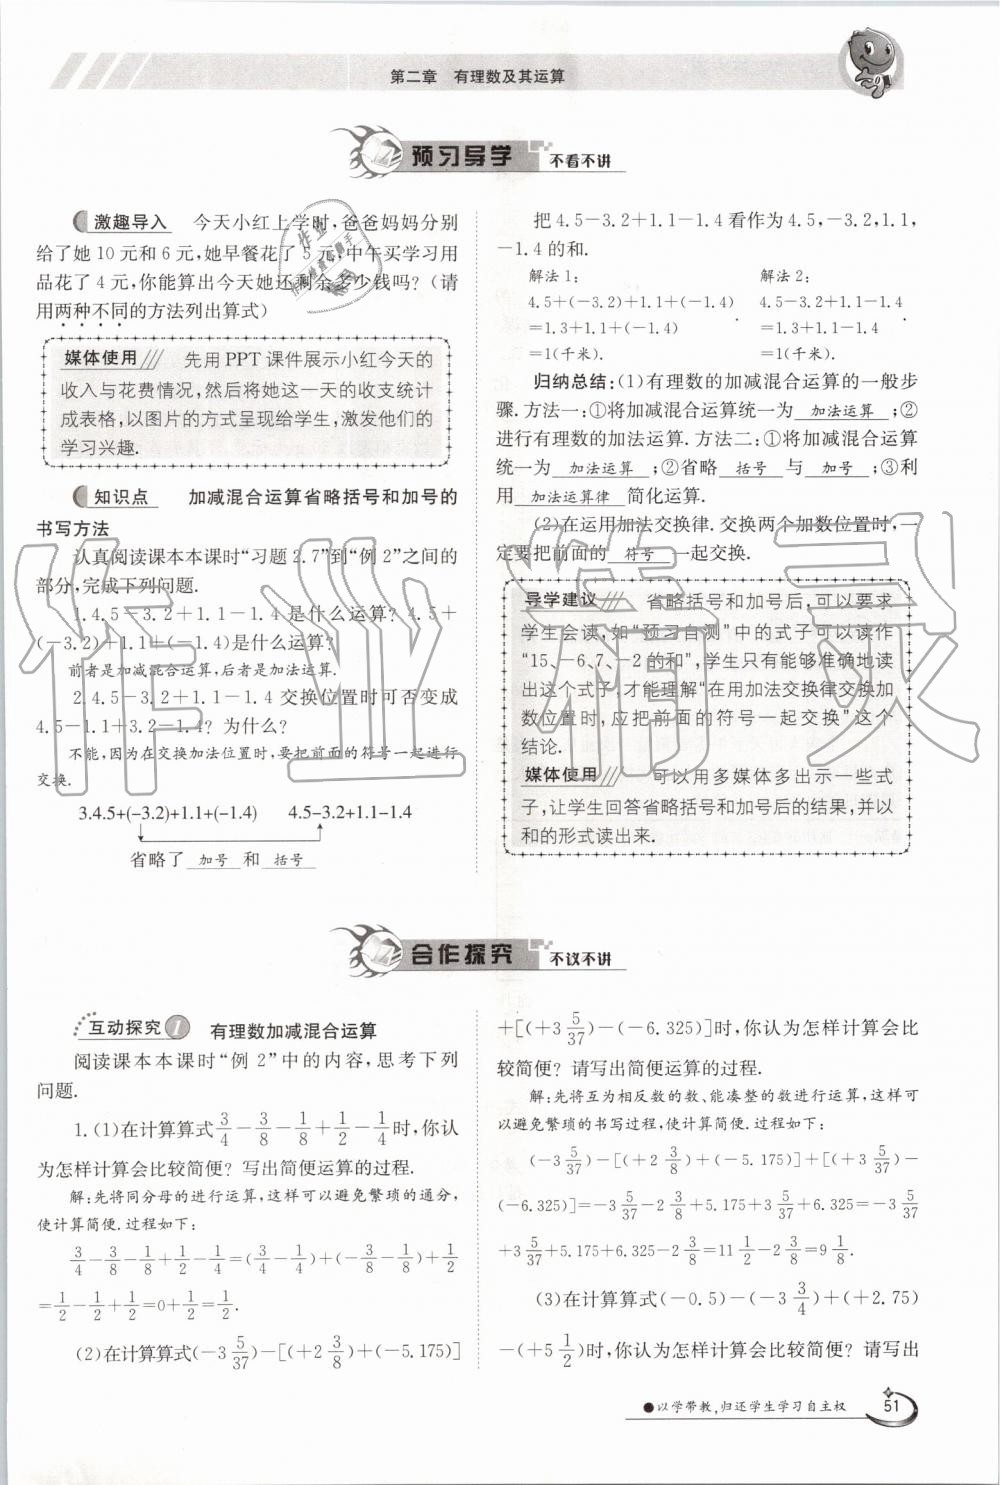 第二章 有理数及其运算
预习导学 不看不讲
激趣导入 今天小红上学时,爸爸妈妈分别
给了她 10 元和 6 元,她早餐花了 5 元,中午买学习用
品花了 4 元,你能算出今天她还剩余多少钱吗?(请
用两种不同的方法列出算式)
媒体使用 先用 PPT 课件展示小红今天的
收入与花费情况,然后将她这一天的收支统计
成表格,以图片的方式呈现给学生,激发他们的
学习兴趣.
知识点 加减混合运算省略括号和加号的
书写方法
认真阅读课本本课时“习题 2.7”到“例 2”之间的
部分,完成下列问题.
1.4.5-3.2+1.1-1.4 是什么运算? 4.5+
(-3.2)+1.1+(-1.4)是什么运算?
前者是加减混合运算,后者是加法运算.
2.4.5-3.2+1.1-1.4 交换位置时可否变成
4.5-1.1+3.2-1.4? 为什么?
不能,因为在交换加法位置时,要把前面的符号一起进行
交换.
3.4.5+(-3.2)+1.1+(-1.4) 4.5-3.2+1.1-1.4
省略了 加号 和 括号
把 4.5-3.2+1.1-1.4 看作为 4.5,-3.2,1.1,
-1.4 的和.
解法 1: 解法 2:
4.5+(-3.2)+1.1+(-1.4) 4.5-3.2+1.1-1.4
=1.3+1.1+(-1.4) =1.3+1.1-1.4
=1(千米). =1(千米).
归纳总结:(1)有理数的加减混合运算的一般步
骤.方法一:①将加减混合运算统一为 加法运算 ;②
进行有理数的加法运算.方法二:①将加减混合运算
统一为 加法运算 ;②省略 括号 与 加号 ;③利
用 加法运算律 简化运算.
(2)在运用加法交换律.交换两个加数位置时,一
定要把前面的 符号 一起交换.
导学建议 省略括号和加号后,可以要求
学生会读,如“预习自测”中的式子可以读作
“15、-6、7、-2 的和”,学生只有能够准确地读
出这个式子,才能理解“在用加法交换律交换加
数位置时,应把前面的符号一起交换”这个
结论.
媒体使用 可以用多媒体多出示一些式
子,让学生回答省略括号和加号后的结果,并以
和的形式读出来.
合作探究 不议不讲
互动探究 1 有理数加减混合运算
阅读课本本课时“例 2”中的内容,思考下列
问题.
1.(1)在计算算式 3/4-3/8-1/8+1/2-1/4 时,你认
为怎样计算会比较简便? 写出简便运算的过程.
解:先将同分母的进行运算,这样可以避免繁琐的通分,
使计算简便.过程如下:
3/4-3/8-1/8+1/2-1/4=(3/4-1/4)+(-3/8-1/8)+1/2
=1/2-1/2+1/2=0+1/2=1/2.
(2)在计算算式(-3 5/37)-[(+2 3/8)+(-5.175)]
+[(+3 5/37)-(-6.325)]时,你认为怎样计算会比
较简便? 请写出简便运算的过程.
解:先将互为相反数的数、能凑整的数进行运算,这样可
以避免繁琐的书写过程,使计算简便.过程如下:
(-3 5/37)-[(+2 3/8)+(-5.175)]+[(+3 5/37)-
(-6.325)]=-3 5/37-2 3/8+5.175+3 5/37+6.325=-3 5/37
+3 5/37+5.175+6.325-2 3/8=11 1/2-2 3/8=9 1/8.
(3)在计算算式(-0.5)-(-3 3/4)+(+2.75)
-(+5 1/2)时,你认为怎样计算会比较简便? 请写出
●以学带教,归还学生学习自主权 51
作业精灵